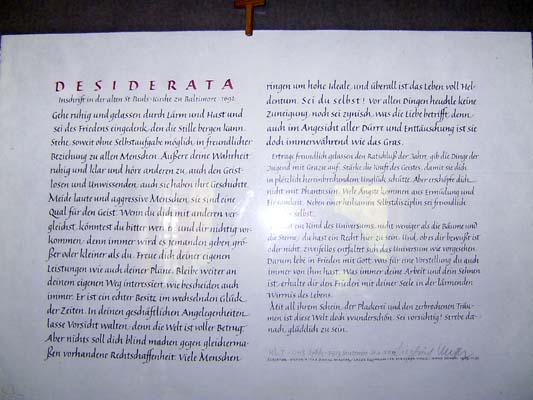 DESIDERATA
Inschrift in der alten St Pauls-Kirche zu Baltimore · 1692
Gehe ruhig und gelassen durch Lärm und Hast und
sei des Friedens eingedenk, den die Stille bergen kann.
Stehe, soweit ohne Selbstaufgabe möglich, in freundlicher
Beziehung zu allen Menschen. Äußere deine Wahrheit
ruhig und klar und höre anderen zu, auch den Geist-
losen und Unwissenden, auch sie haben ihre Geschichte.
Meide laute und aggressive Menschen, sie sind eine
Qual für den Geist. Wenn du dich mit andern ver-
gleichst, könntest du bitter werden und dir nichtig vor-
kommen; denn immer wird es jemanden geben, grö-
ßer oder kleiner als du. Freue dich deiner eigenen
Leistungen wie auch deiner Pläne. Bleibe weiter an
deinem eigenen Weg interessiert, wie bescheiden auch
immer. Er ist ein echter Besitz im wechselnden Glück
der Zeiten. In deinen geschäftlichen Angelegenheiten
lasse Vorsicht walten, denn die Welt ist voller Betrug.
Aber nichts soll dich blind machen gegen gleicherma-
ßen vorhandene Rechtschaffenheit. Viele Menschen
ringen um hohe Ideale, und überall ist das Leben voll Hel-
dentum. Sei du selbst! Vor allen Dingen heuchle keine
Zuneigung, noch sei zynisch, was die Liebe betrifft, denn
auch im Angesicht aller Dürre und Enttäuschung ist sie
doch immerwährend wie das Gras.
Ertrage freundlich gelassen den Ratschluß der Jahre, gib die Dinge der
Jugend mit Grazie auf. Stärke die Kraft des Geistes, damit sie dich
in plötzlich hereinbrechendem Unglück schütze. Aber erschöpfe dich
nicht mit Phantasien. Viele Ängste kommen aus Ermüdung und
Einsamkeit. Neben einer heilsamen Selbstdisziplin sei freundlich
selbst.
ein Kind des Universums, nicht weniger als die Bäume und
die Sterne; du hast ein Recht hier zu sein. Und, ob es dir bewußt ist
oder nicht, zweifellos entfaltet sich das Universum wie vorgesehen.
Darum lebe in Frieden mit Gott, was für eine Vorstellung du auch
immer von ihm hast. Was immer deine Arbeit und dein Sehnen
ist, erhalte dir den Frieden mit deiner Seele in der lärmenden
Wirrnis des Lebens.
Mit all ihrem Schein, der Plackerei und den zerbrochenen Träu-
men ist diese Welt doch wunderschön. Sei vorsichtig! Strebe da-
nach, glücklich zu sein.